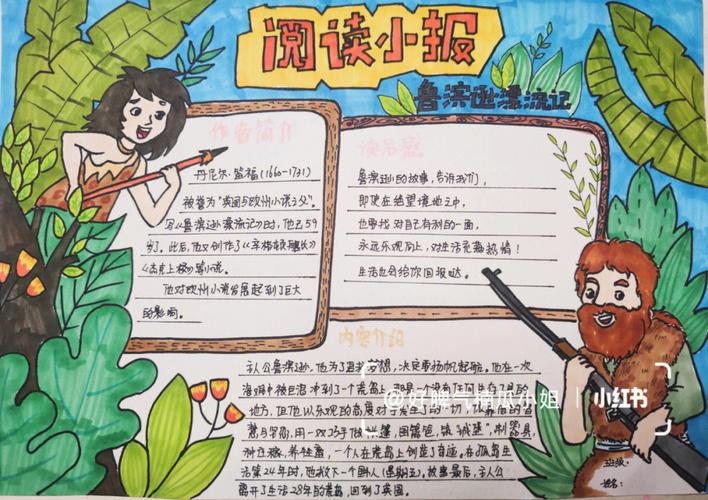 阅读小报
鲁滨逊漂流记
作者简介
丹尼尔·笛福(1660-1731)
被誉为“英国与欧州小说之父”。
写《鲁滨逊漂流记》时，他已59
岁了。此后，他又创作了《辛格顿船长》
《杰克上校》等小说。
他对欧州小说发展起到了巨大
的影响。
读后感
鲁滨逊的故事，告诉我们，
即使在绝望境地之中，
也要找对自己有利的一面，
永远乐观向上，对生活充满热情！
生活也会给你回报哒。
内容介绍
主人公鲁滨逊，他为了追求梦想，决定要扬帆起航。他在一次
海难中被巨浪冲到了一个荒岛上，那是一个没有任何生存工具的
地方，但他以乐观的态度对于发生了的一切，
用一双巧手做
种庄稼，养牲畜，一个人在荒岛上创造了奇迹，在孤岛生
活第24年时，他救下一个野人（星期五），故事最后，主人公
离开了生活28年的荒岛，回到了英国。
班级：
姓名：
@好脾气摘瓜小姐 | 小红书